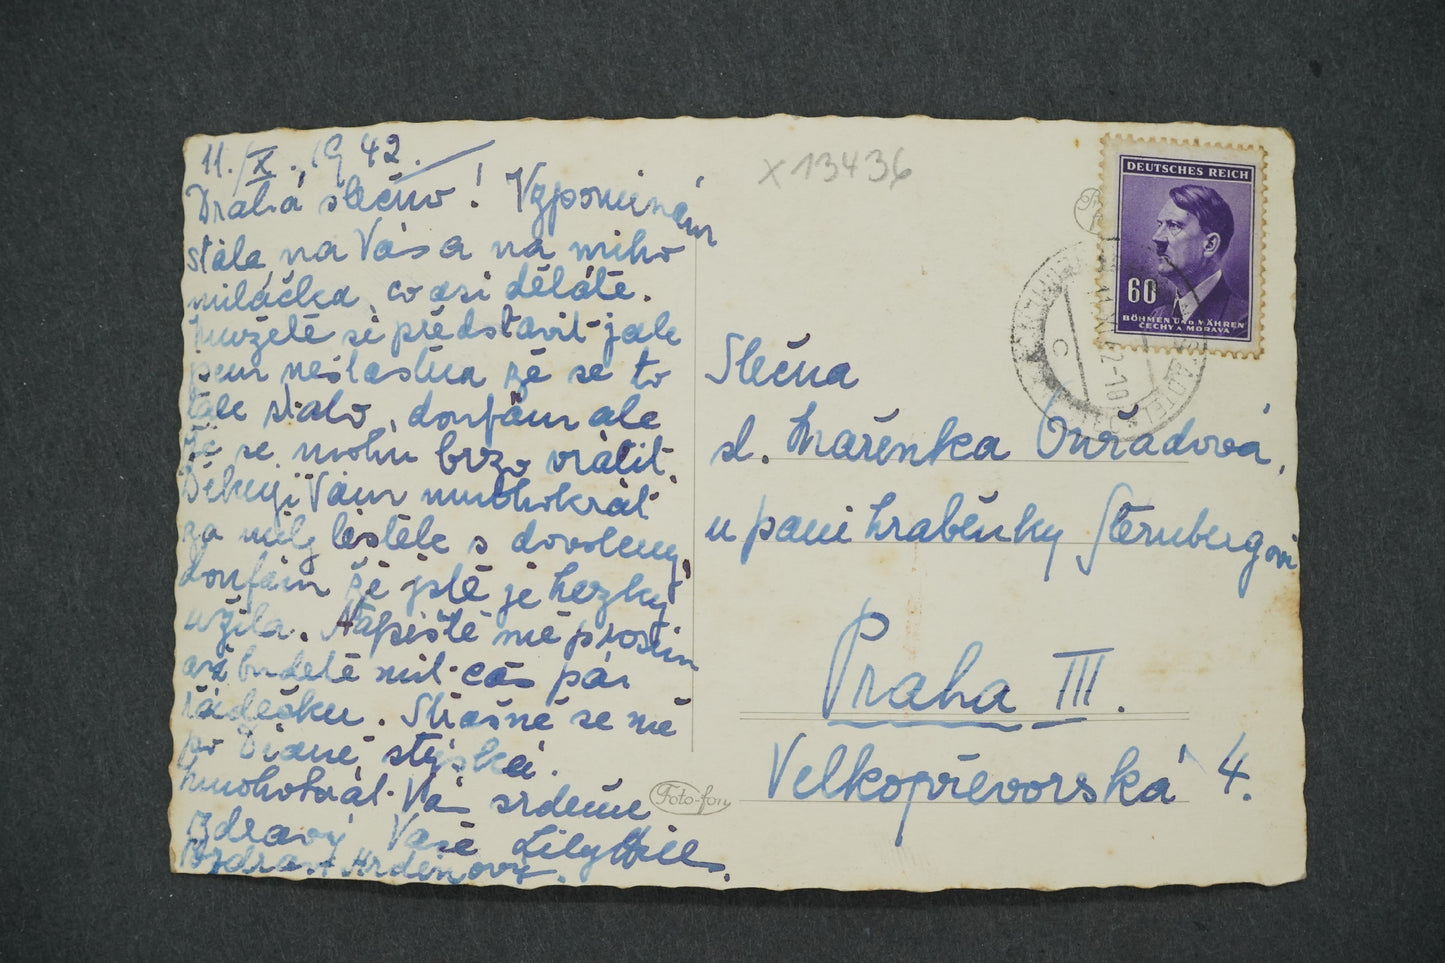 11./X., 1942.
Drahá slečno! Vzpomínám
stále na Vás a na mího
miláčka, co asi děláte.
Mužete si představit jak
jsem nešťastna že se to
tak stalo, doufám ale
že se mohu brzo vrátit.
Děkuji Vám mnohokrát
za milý lísteček s dovolený,
doufám že jstě je hezky
užila. Napiště mě prosím
až budetě mít čas pár
řádečku. Strašně se mě
po Dianě stýská.
Mnohokrát Vás srdečne
zdraví Vaše Lily Hill.
Pozdrav Hrdinovy.
x 13436
DEUTSCHES REICH
60
BÖHMEN UND MÄHREN
ČECHY A MORAVA
Slečna
sl. Mařenka Ondřadová,
u paní hraběnky Sternbergovi
Praha III.
Velkopřevorská 4.
Foto-fon